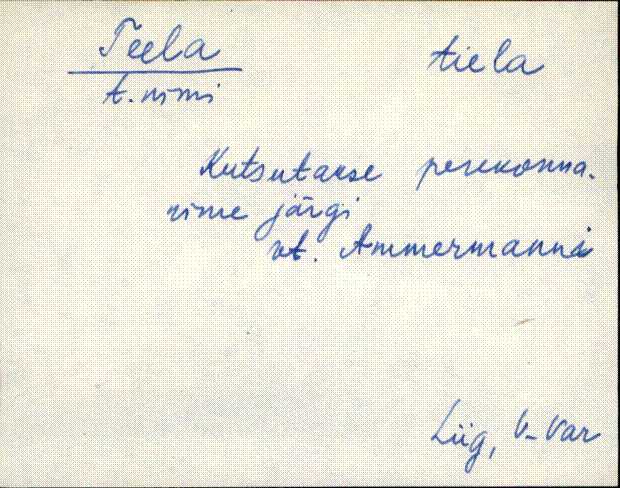 Teela tiela
t. nimi
Kutsutakse perekonna-
nime järgi
vt. Ammermanni
Liig, V-Var